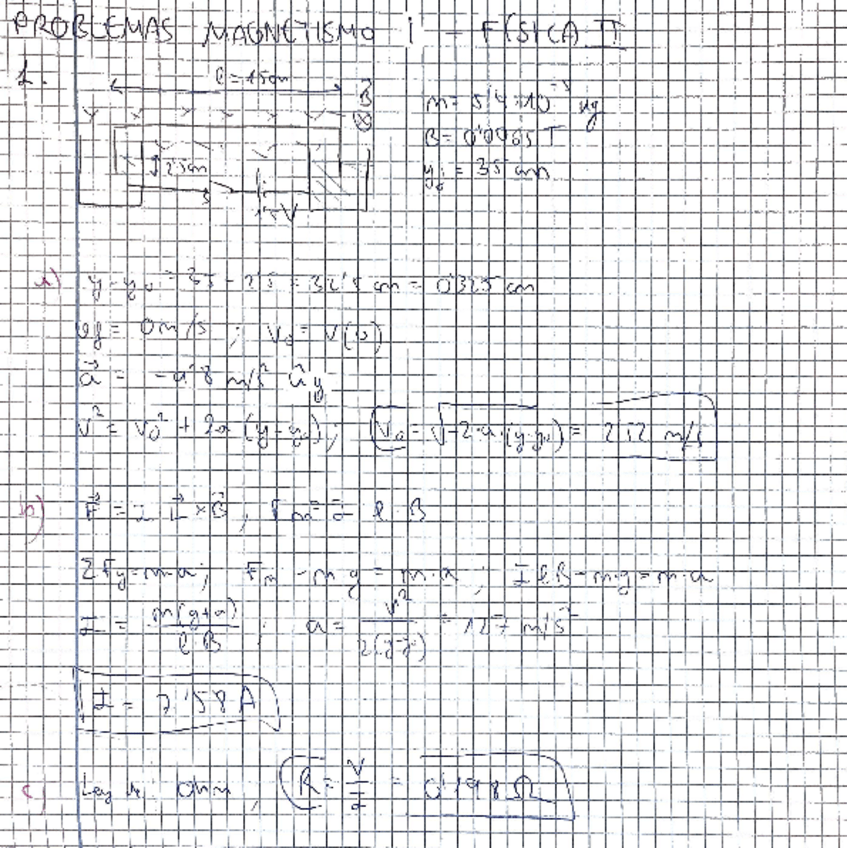 PROBLEMAS MAGNETISMO I - FÍSICA II
1.
l = 15 cm
B
m = 5'4·10⁻⁵ kg
B = 0'0065 T
y = 35 cm
2'5cm
1'5 V
a) y-y₀ = 35 - 2'5 = 32'5 cm = 0'325 cm
vy = 0 m/s ; v₀ = v(0)
a = -9'8 m/s² ûy
v² = v₀² + 2a (y-y₀) ; v₀ = √-2·a·(y-y₀) = 2'52 m/s
b) F = I L × B , Fm = I l B
ΣFy = m·a ; Fm - mg = m·a ; I l B - m·g = m·a
I = m(g+a) / l B ; a = v² / 2(y-y₀) = 127 m/s²
I = 7'58 A
c) Ley de Ohm , R = V / I = 0'198 Ω